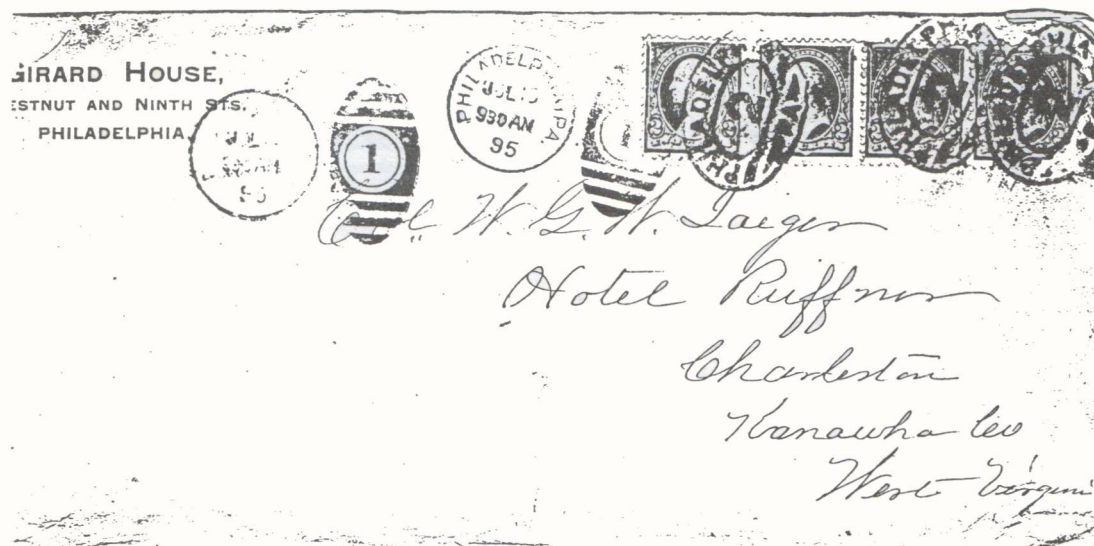 GIRARD HOUSE,
ESTNUT AND NINTH STS.
PHILADELPHIA
PHILADELPHIA PA
JUL
930AM
95
1
PHILADELPHIA PA
2
Col. W. G. W. Jaeger
Hotel Ruffner
Charleston
Kanawha Co
West Virginia